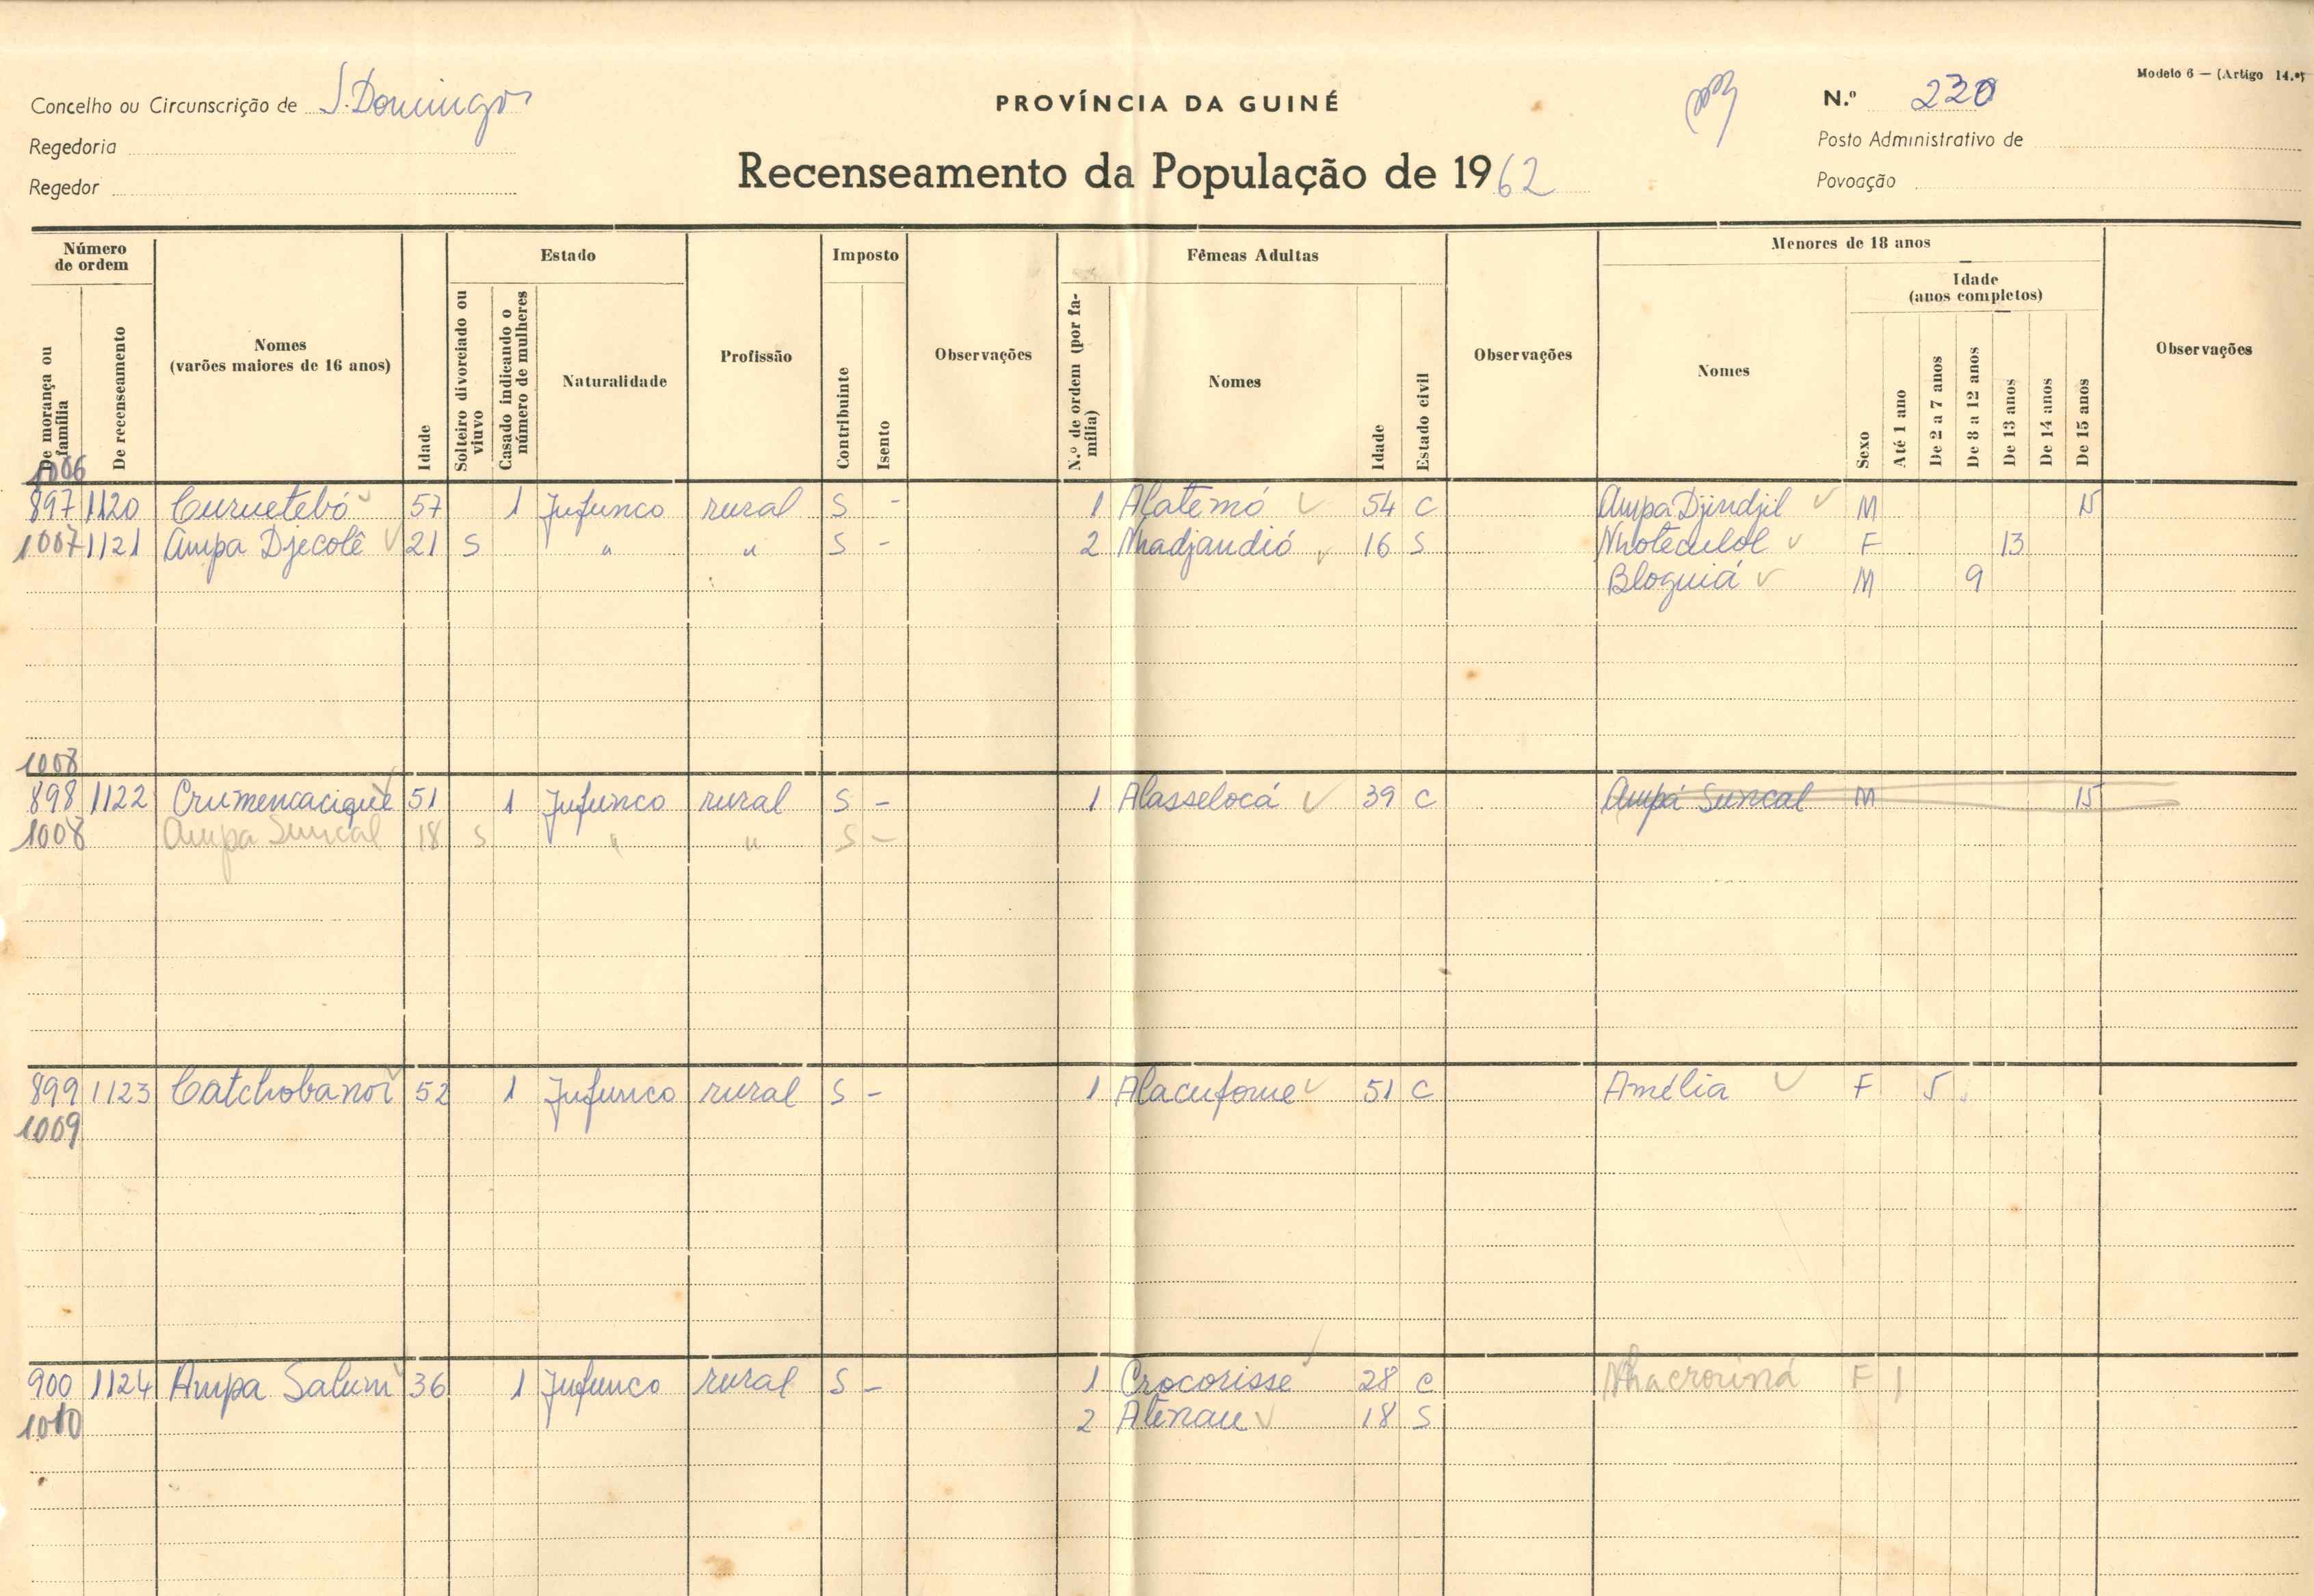 Modelo 6 — (Artigo 14.º)
Concelho ou Circunscrição de S. Domingos
PROVÍNCIA DA GUINÉ
N.º 220
Regedoria
Posto Administrativo de
Regedor
Recenseamento da População de 1962
Povoação
Número de ordem
De morança ou família
De recenseamento
Nomes
(varões maiores de 16 anos)
Idade
Estado
Solteiro divorciado ou viuvo
Casado indicando o número de mulheres
Naturalidade
Profissão
Imposto
Contribuinte
Isento
Observações
Fêmeas Adultas
N.º de ordem (por família)
Nomes
Idade
Estado civil
Observações
Menores de 18 anos
Nomes
Sexo
Idade
(anos completos)
Até 1 ano
De 2 a 7 anos
De 8 a 12 anos
De 13 anos
De 14 anos
De 15 anos
Observações
1006
897 1120 Curuetebó 57 1 Jufunco rural S - 1 Alatemó 54 C Ampa Djindjil M 15
1007 1121 Ampa Djecolê 21 S " " S - 2 Nhadjandió 16 S Nhoteculol F 13
Bloguiá M 9
1008
898 1122 Crumencacique 51 1 Jufunco rural S - 1 Alasselocá 39 C Ampá Suncal M 15
1008 Ampa Suncal 18 S " " S -
899 1123 Catchobanoi 52 1 Jufunco rural S - 1 Alacufome 51 C Amélia F 5
1009
900 1124 Ampa Salum 36 1 Jufunco rural S - 1 Crocorisse 28 C Nhacroiná F 1
1010 2 Alenau 18 S